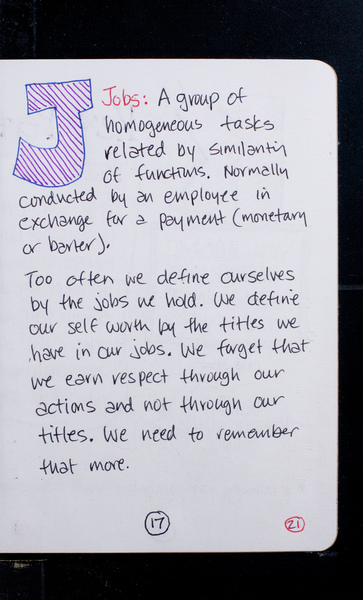 J Jobs: A group of
homogeneous tasks
related by similarity
of functions. Normally
conducted by an employee in
exchange for a payment (monetary
or barter).
Too often we define ourselves
by the jobs we hold. We define
our self worth by the titles we
have in our jobs. We forget that
we earn respect through our
actions and not through our
titles. We need to remember
that more.
17
21